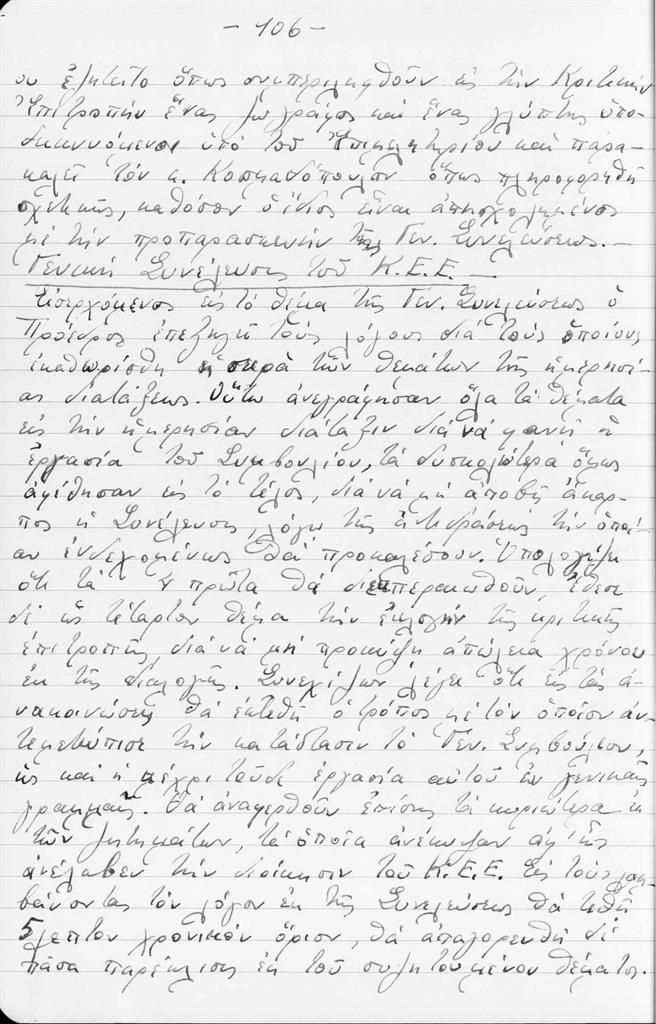 - 106 -
ου ἐζητεῖτο ὅπως συμπεριληφθοῦν εἰς τὴν Κριτικὴν
Ἐπιτροπὴν ἕνας ζωγράφος καὶ ἕνας γλύπτης ὑπο-
δεικνυόμενοι ὑπὸ τοῦ Ἐπιμελητηρίου καὶ παρα-
καλεῖ τὸν κ. Κοσμαδόπουλον ὅπως πληροφορηθῇ
σχετικῶς, καθόσον ὁ ἴδιος εἶναι ἀπησχολημένος
μὲ τὴν προπαρασκευὴν τῆς Γεν. Συνελεύσεως. -
Γενικὴ Συνέλευσις τοῦ Κ.Ε.Ε. -
Εἰσερχόμενος εἰς τὸ θέμα τῆς Γεν. Συνελεύσεως ὁ
Πρόεδρος ἐπεξηγεῖ τοὺς λόγους διὰ τοὺς ὁποίους
ἐκαθωρίσθη ἡ σειρὰ τῶν θεμάτων τῆς ἡμερησί-
ας διατάξεως. Οὕτω ἀνεγράφησαν ὅλα τὰ θέματα
εἰς τὴν ἡμερησίαν διάταξιν διὰ νὰ φανῇ ἡ
ἐργασία τοῦ Συμβουλίου, τὰ δυσκολώτερα ὅμως
ἀφέθησαν εἰς τὸ τέλος, διὰ νὰ μὴ ἀποβῇ ἄκαρ-
πος ἡ Συνέλευσις, λόγῳ τῆς ἀντιδράσεως τὴν ὁποί-
αν ἐνδεχομένως θὰ προκαλέσουν. Ὑπολογίζει
ὅτι τὰ 4 πρῶτα θὰ διεκπεραιωθοῦν, ἔθεσε
δὲ ὡς τέταρτον θέμα τὴν ἐκλογὴν τῆς κριτικῆς
ἐπιτροπῆς, διὰ νὰ μὴ προκύψῃ ἀπώλεια χρόνου
ἐκ τῆς διαλογῆς. Συνεχίζων λέγει ὅτι εἰς τὰς ἀ-
νακοινώσεις θὰ ἐκτεθῇ ὁ τρόπος μὲ τὸν ὁποῖον ἀν-
τεμετώπισε τὴν κατάστασιν τὸ Γεν. Συμβούλιον,
ὡς καὶ ἡ μέχρι τοῦδε ἐργασία αὐτοῦ ἐν γενικαῖς
γραμμαῖς. Θὰ ἀναφερθοῦν ἐπίσης τὰ κυριώτερα ἐκ
τῶν ζητημάτων, τὰ ὁποῖα ἀνέκυψαν ἀφ' ἧς
ἀνέλαβεν τὴν διοίκησιν τοῦ Κ.Ε.Ε. Εἰς τοὺς λαμ-
βάνοντας τὸν λόγον ἐκ τῆς Συνελεύσεως θὰ τεθῇ
5λεπτον χρονικὸν ὅριον, θὰ ἀπαγορευθῇ δὲ
πᾶσα παρέκλισις ἐκ τοῦ συζητουμένου θέματος.